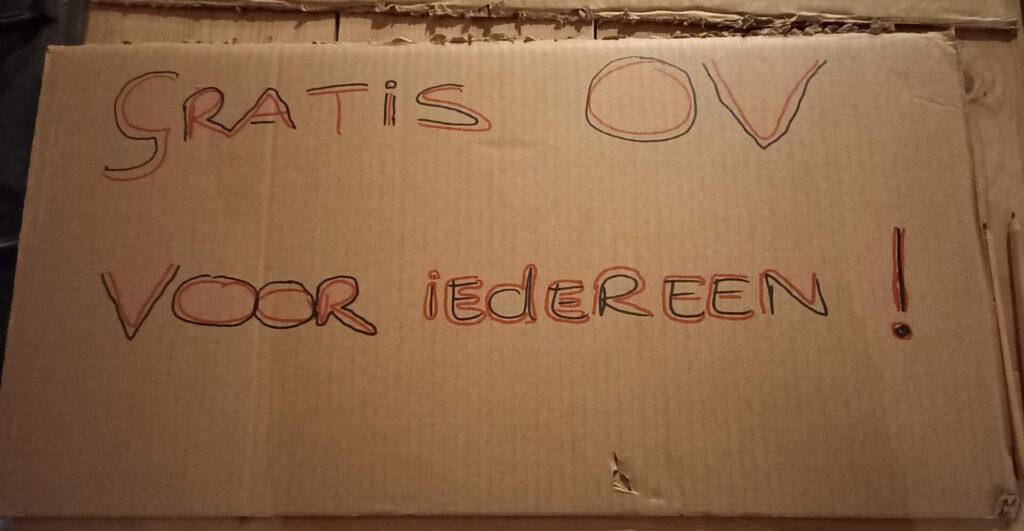 GRATiS OV
VOOR iEdEREEN !